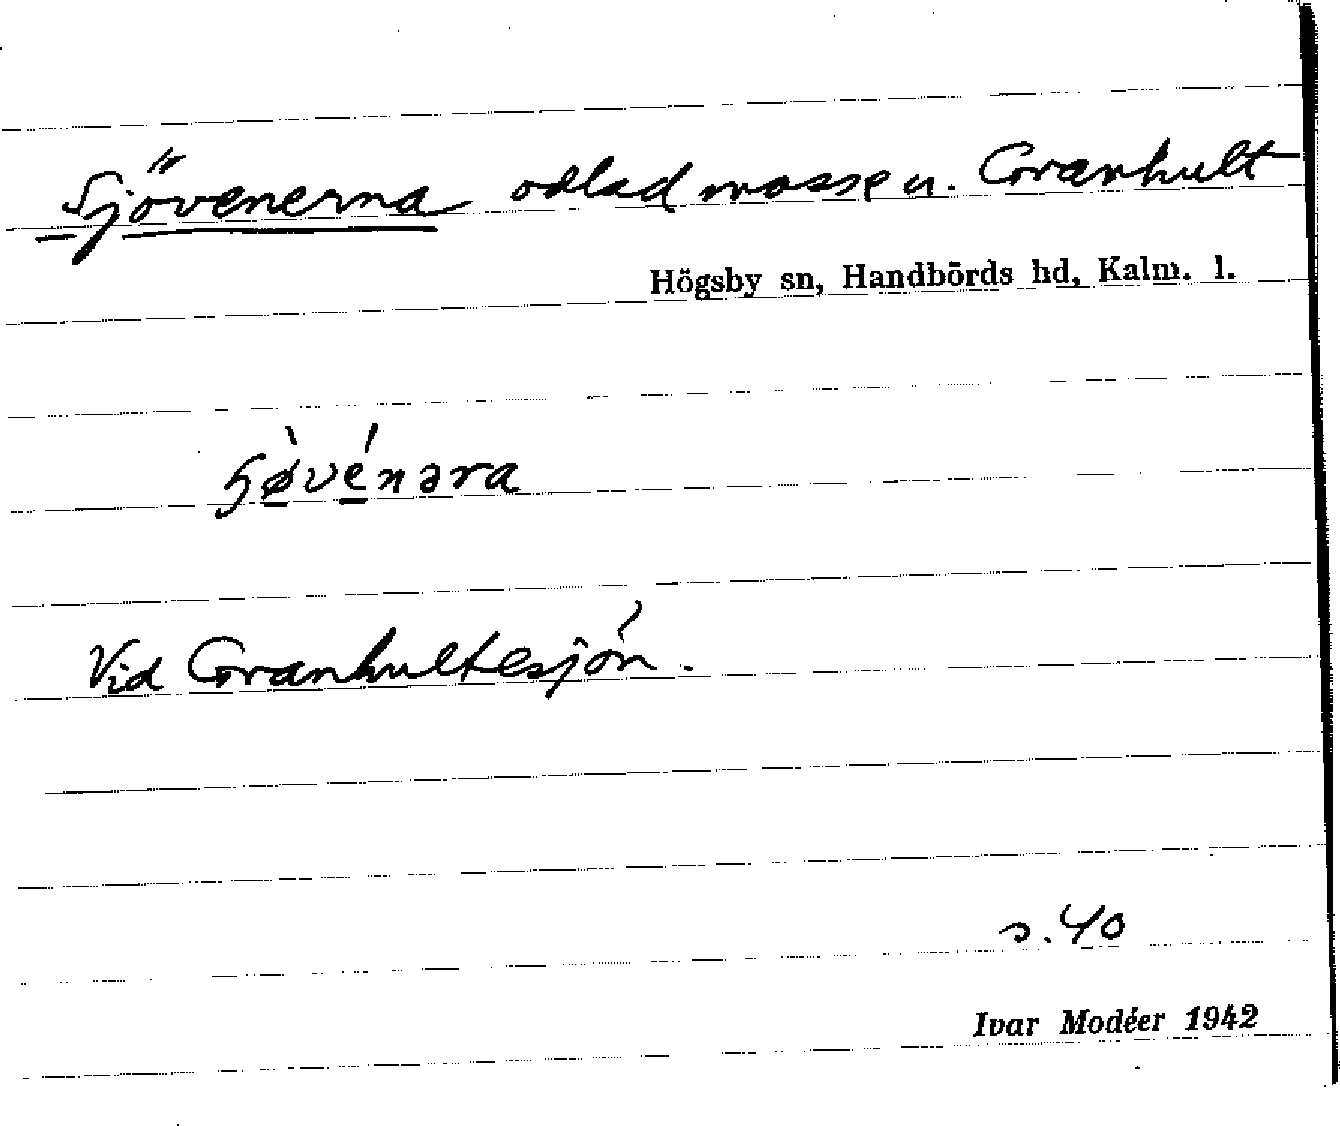 Sjövenerna odlad mosse u. Granhult
Högsby sn, Handbörds hd, Kalm. l.
ɧø̀vénəra
Vid Granhultesjön.
s. 40
Ivar Modéer 1942